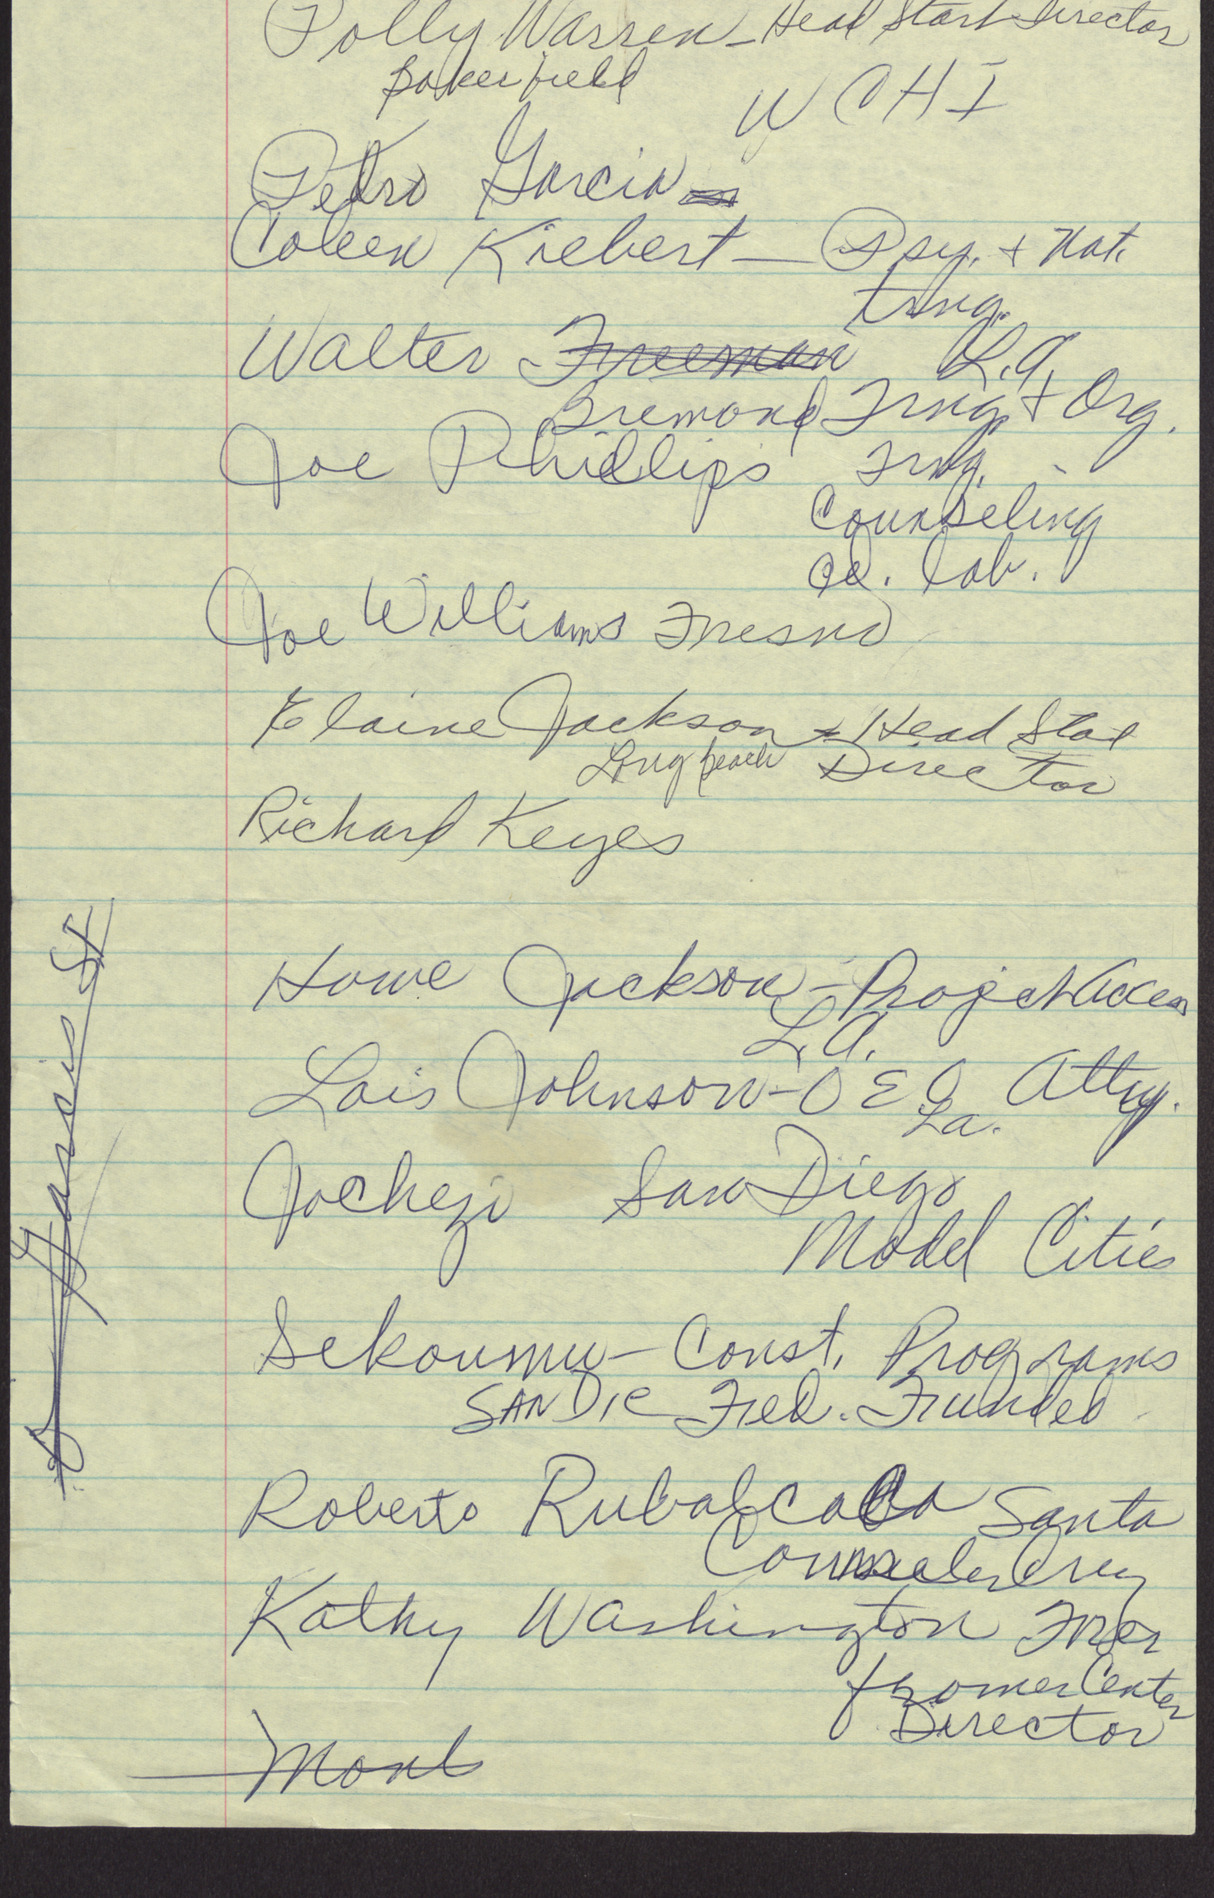 Polly Warren - Head Start Director
Bakerfield
WCHI
Pedro Garcia
Coleen Kiebert - Psy. + Nat.
trng.
Walter Freeman L.A.
Bremond Trng. + Org.
Joe Phillips Trng.
Counseling
Ed. lab.
Joe Williams Fresno
Elaine Jackson Head Stat
Long beach Director
Richard Keyes
Howe Jackson - Project Access
L.A.
Lois Johnson - OEO Atty.
La.
Jochezi San Diego
Model Cities
Sekoumu - Const. Programs
SAN DIE Fed. Frunded
Roberto Rubalcaba Santa
Counseler Cruz
Kathy Washington Trner
fromer Center
Director
Mont
Garcia St